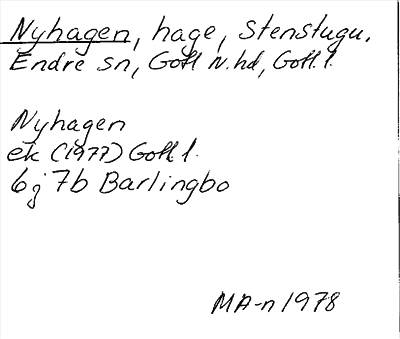 Nyhagen, hage, Stenstugu.
Endre sn, Gotl N.hd, Gotl.l.
Nyhagen
ek (1977) Gotl l.
6j 7b Barlingbo
MA-n 1978